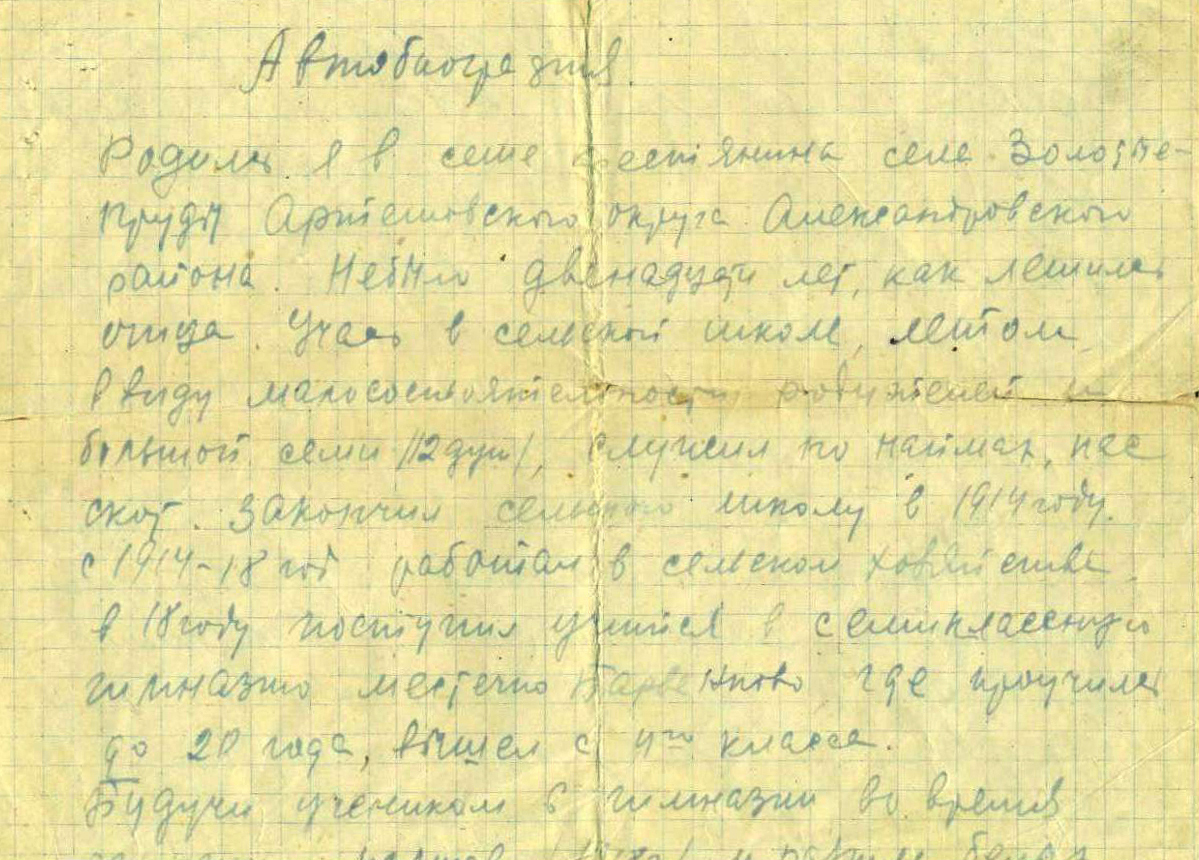 Автобиография.
Родилсь я в семе крестянина села Золотые-
Пруды Артемовского округа Александровского
района. Небыло двенадцати лет, как лешилсь
отца. Учась в сельской школе, летом,
ввиду малосостоятельности родителей и
большой семи /12 душ/, служил по наймах, пас
скот. Закончил сельскую школу в 1914 году.
с 1914-18 год работал в сельском хозяйстве.
в 18 году поступил учится в семиклассную
гимназию местечко Барвенково, где проучилсь
до 20 года, вышел с 4го класса.
Будучи учеником в гимназии во время